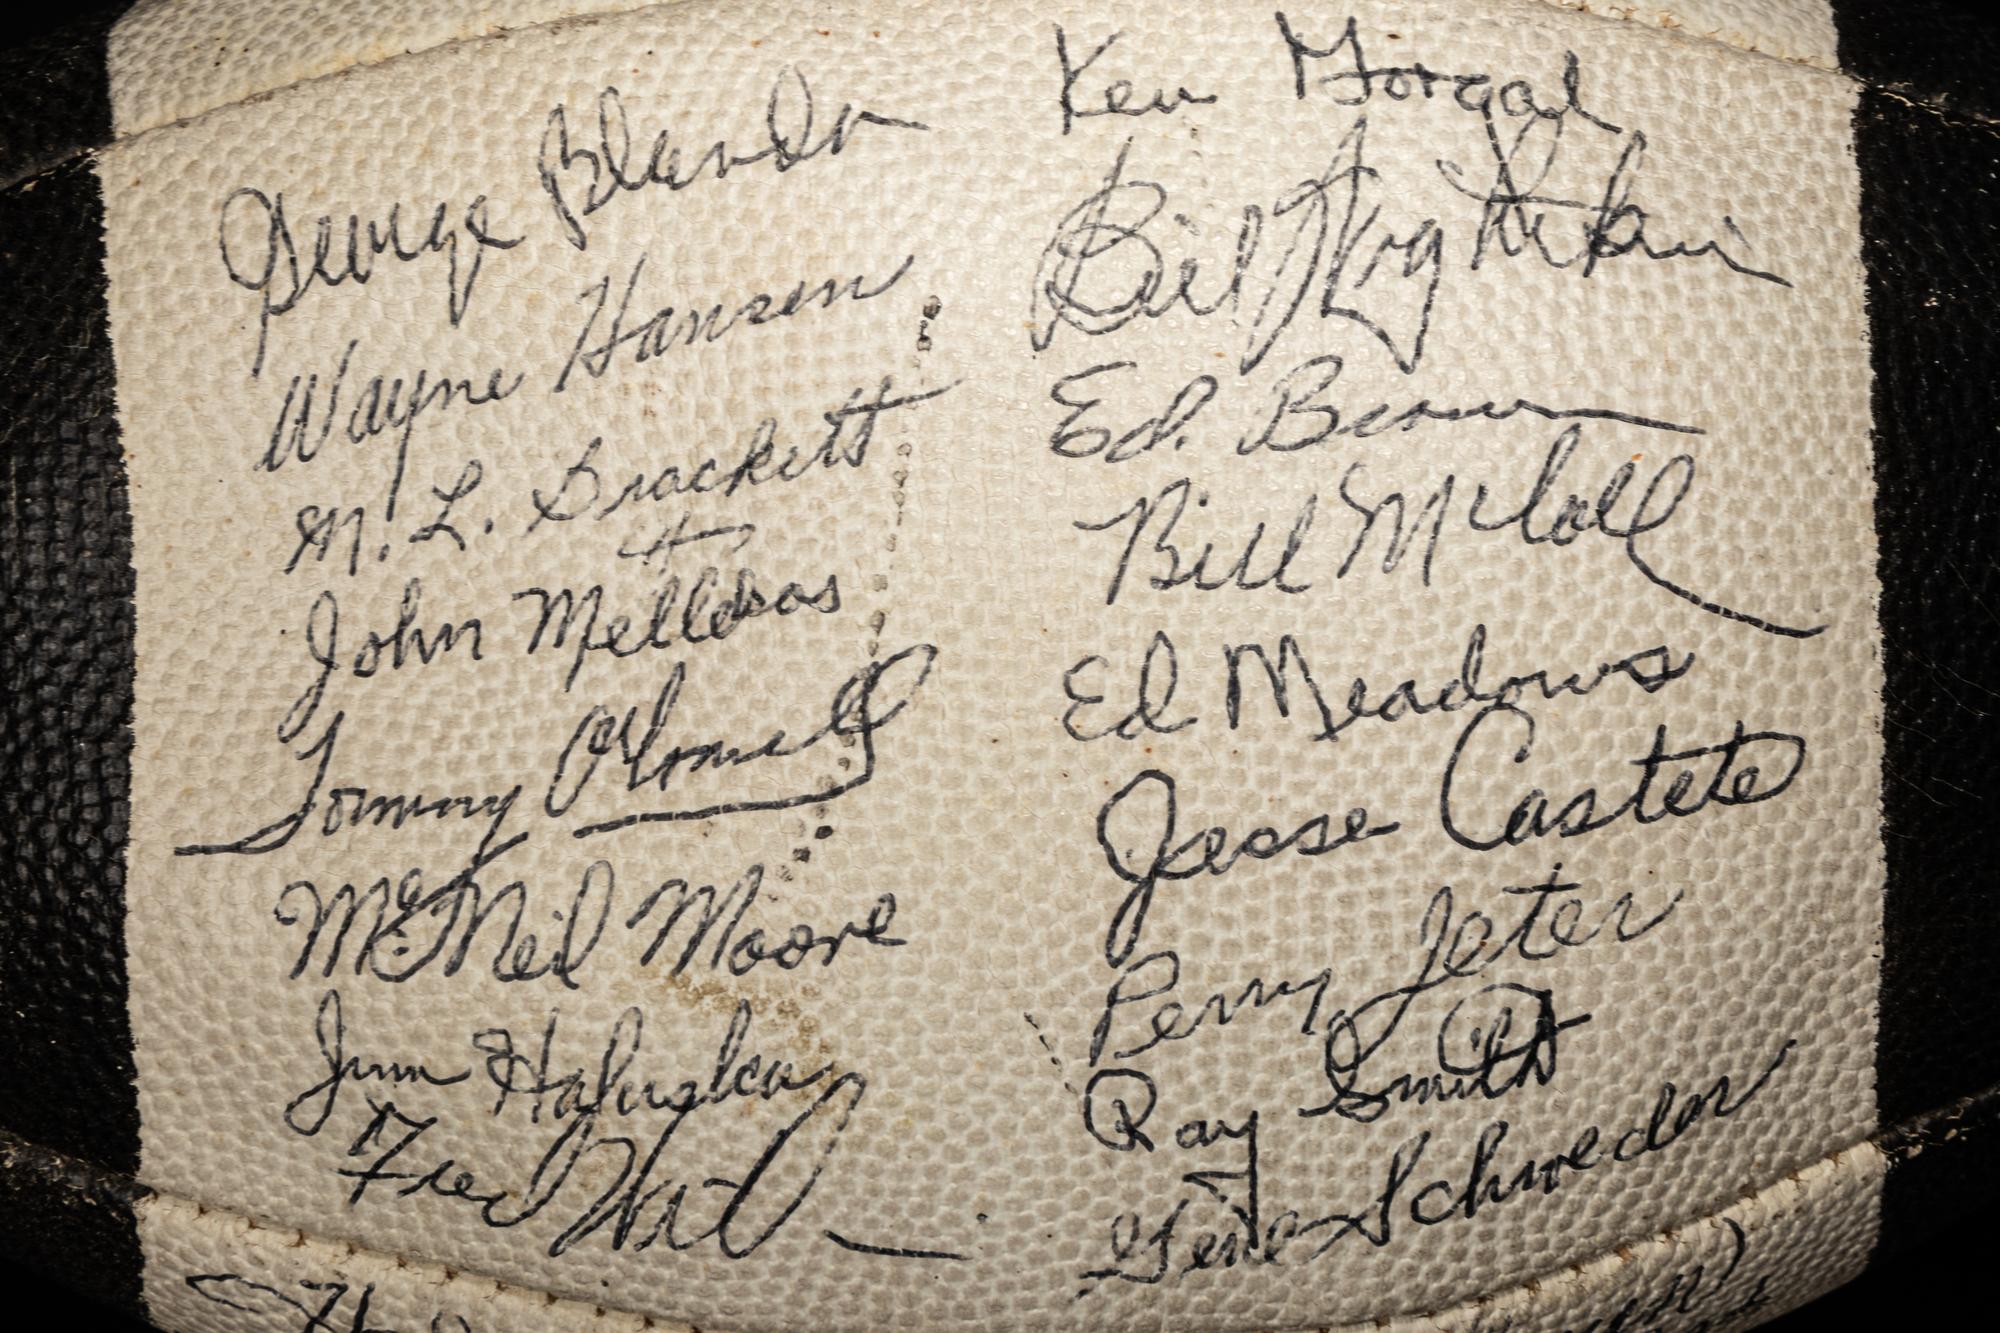 George Blanda
Wayne Hansen
M. L. Brackett
John Mellekas
Tommy O'Connell
McNeil Moore
Jim Haluska
Fred
Ken Gorgal
Bill Wightkin
Ed. Brown
Bill McColl
Ed Meadows
Jesse Castete
Perry Jeter
Ray Smith
Gene Schroeder